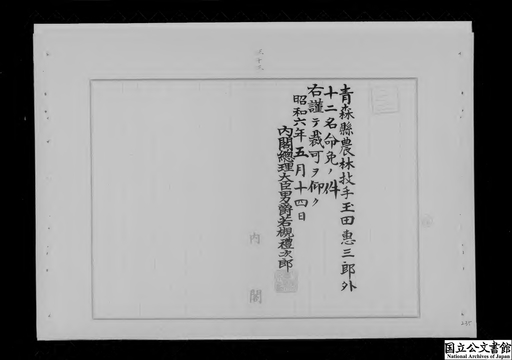 青森縣農林技手玉田惠三郎外
十二名命免ノ件
右謹テ裁可ヲ仰ク
昭和六年五月十四日
內閣總理大臣男爵若槻禮次郎
內閣
国立公文書館
National Archives of Japan